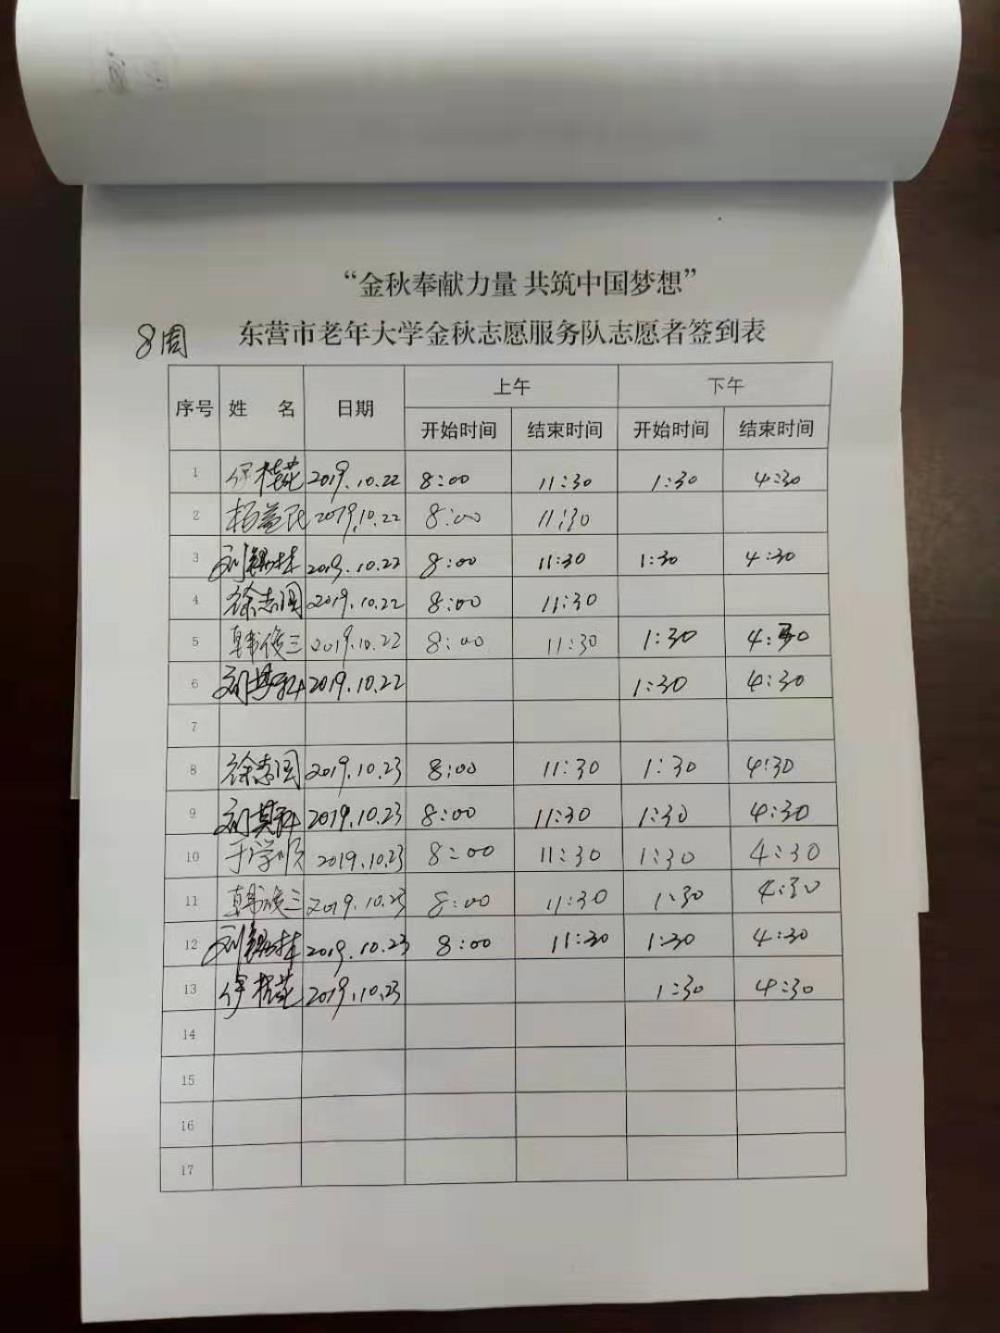 “金秋奉献力量 共筑中国梦想”
8周 东营市老年大学金秋志愿服务队志愿者签到表
序号 姓 名 日期 上午 下午
开始时间 结束时间 开始时间 结束时间
1 伊桂花 2019.10.22 8:00 11:30 1:30 4:30
2 杨益民 2019.10.22 8:00 11:30
3 刘锡林 2019.10.22 8:00 11:30 1:30 4:30
4 徐志国 2019.10.22 8:00 11:30
5 韩俊三 2019.10.22 8:00 11:30 1:30 4:30
6 刘其科 2019.10.22 1:30 4:30
7
8 徐志国 2019.10.23 8:00 11:30 1:30 4:30
9 刘其科 2019.10.23 8:00 11:30 1:30 4:30
10 于学顺 2019.10.23 8:00 11:30 1:30 4:30
11 韩俊三 2019.10.23 8:00 11:30 1:30 4:30
12 刘锡林 2019.10.23 8:00 11:30 1:30 4:30
13 伊桂花 2019.10.23 1:30 4:30
14
15
16
17